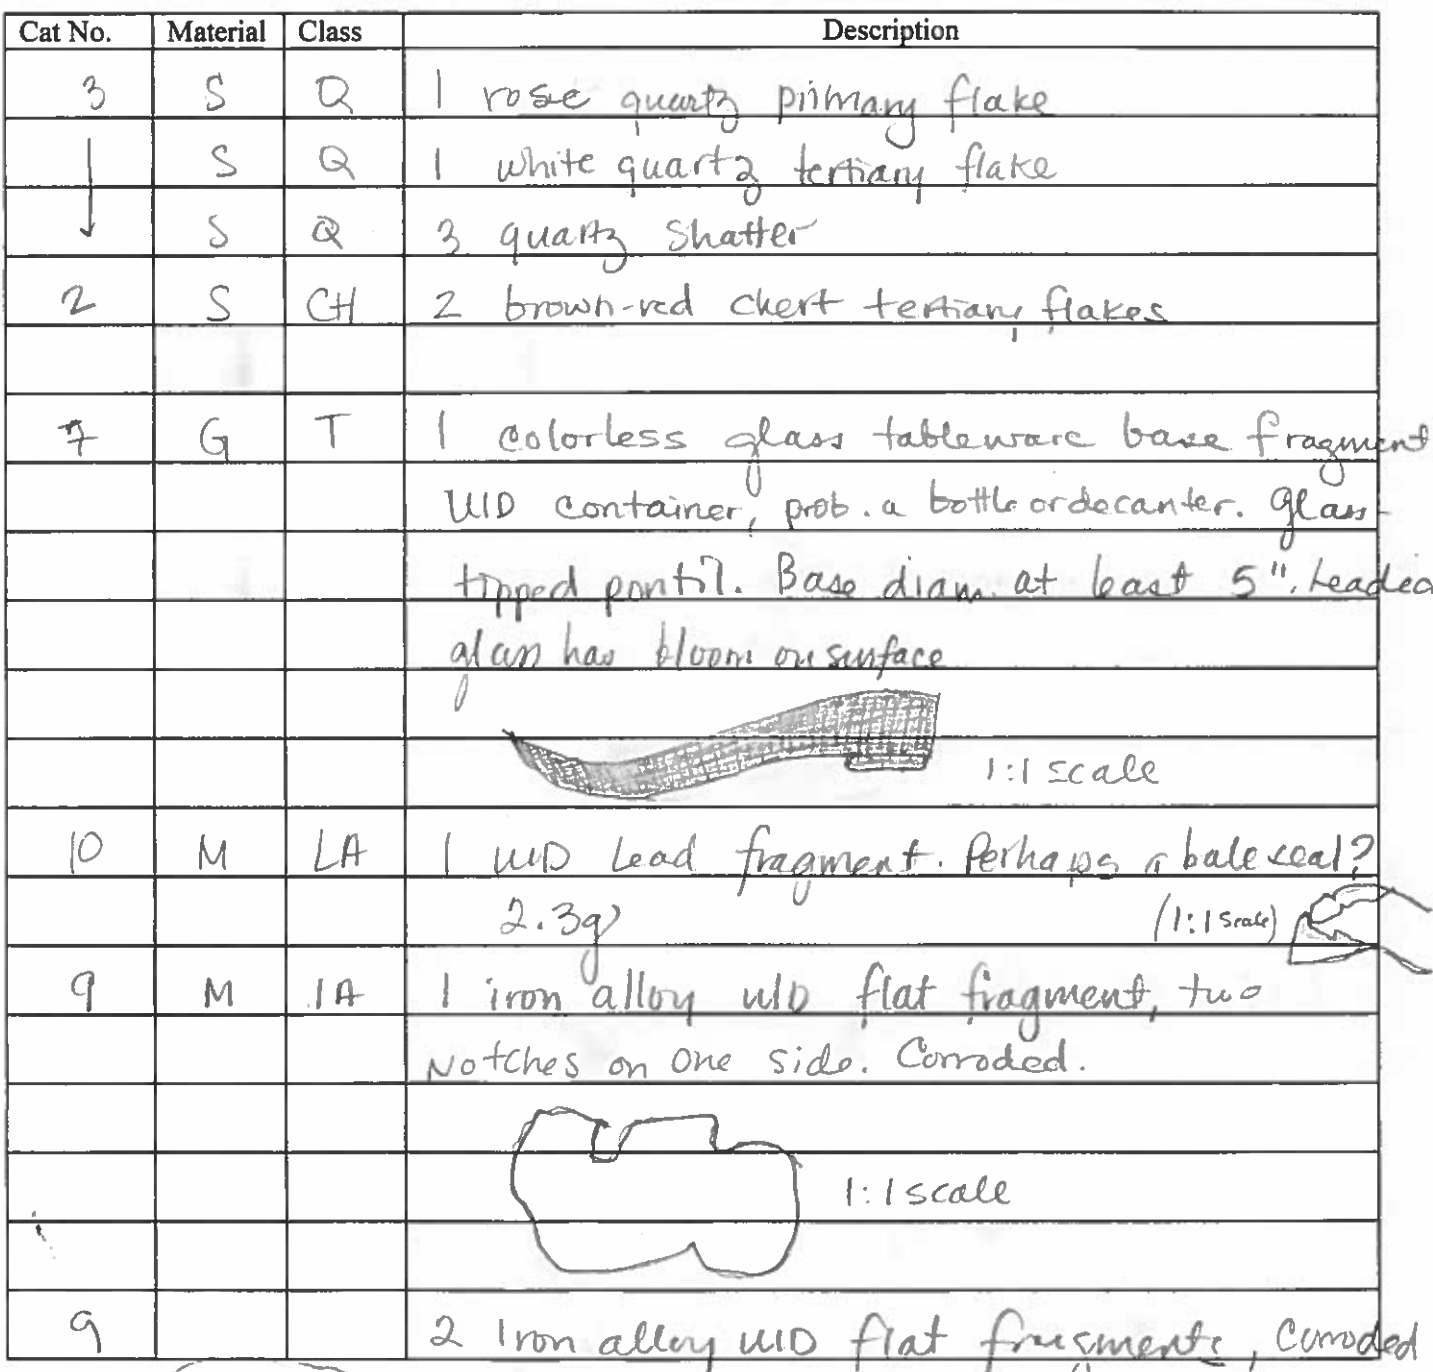 Cat No. Material Class Description
3 S Q 1 rose quartz primary flake
S Q 1 white quartz tertiary flake
S Q 3 quartz Shatter
2 S CH 2 brown-red chert tertiary flakes
7 G T 1 colorless glass tableware base fragment
UID container, prob. a bottle or decanter. Glass-
tipped pontil. Base diam. at least 5". Leaded
glass has bloom on surface
1:1 scale
10 M LA 1 UID Lead fragment. Perhaps a bale seal?
2.3g (1:1 scale)
9 M IA 1 iron alloy UID flat fragment, two
Notches on one side. Corroded.
1:1 scale
9 2 Iron alloy UID flat fragments, Corroded